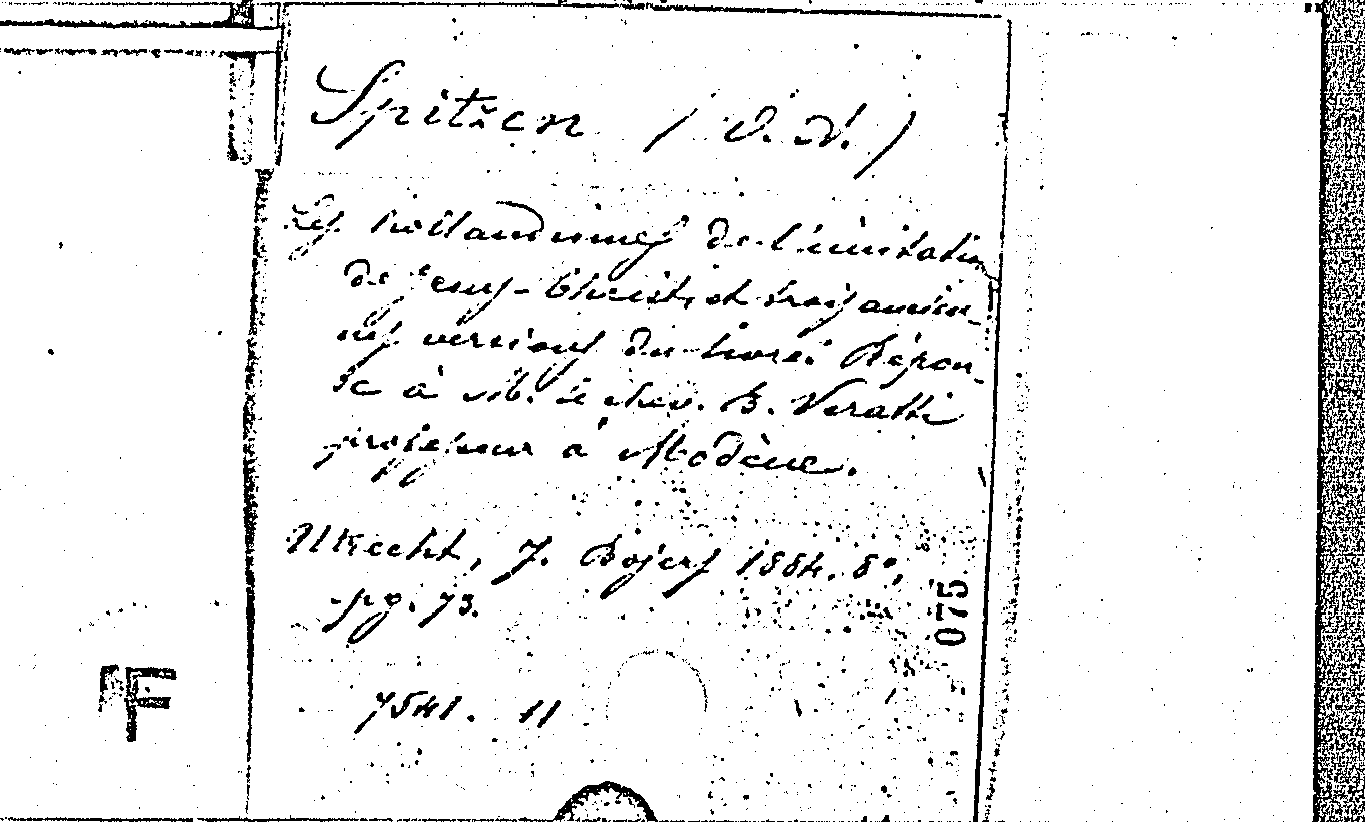 Spitzen (O. A.)
Les hollandismes de l'imitation
de Jesus-Christ, et trois ancien-
nes versions du livre. Répon-
se à M. le chev. B. Veratti
professeur à Modène.
Utrecht, J. Bojers 1884. 8°,
pg. 73.
7541. 11
075
F